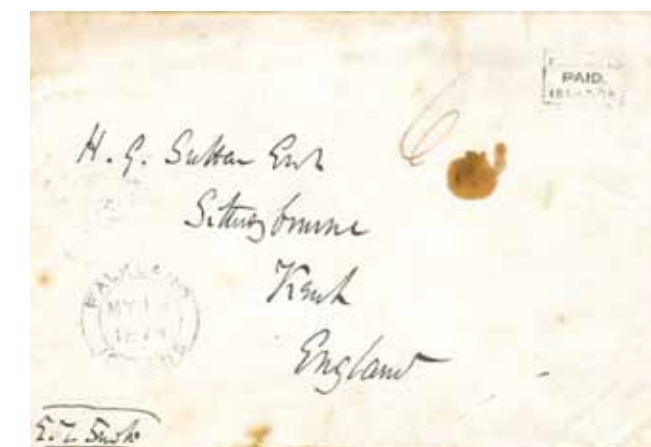 PAID.
6
H. G. Sutton Esq
Sittingbourne
Kent
England
FALKLAND
MY